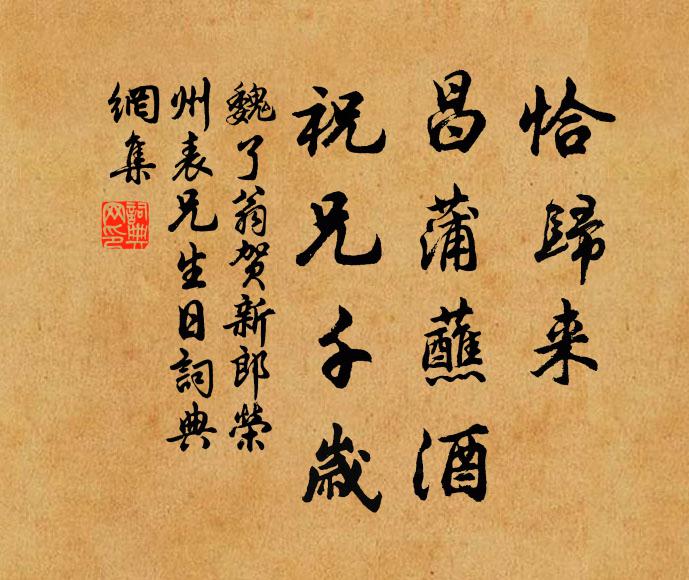 恰歸来
昌蒲蘸酒
祝兄千歲
魏了翁賀新郎榮
州表兄生日詞典
網集
詞典
网印